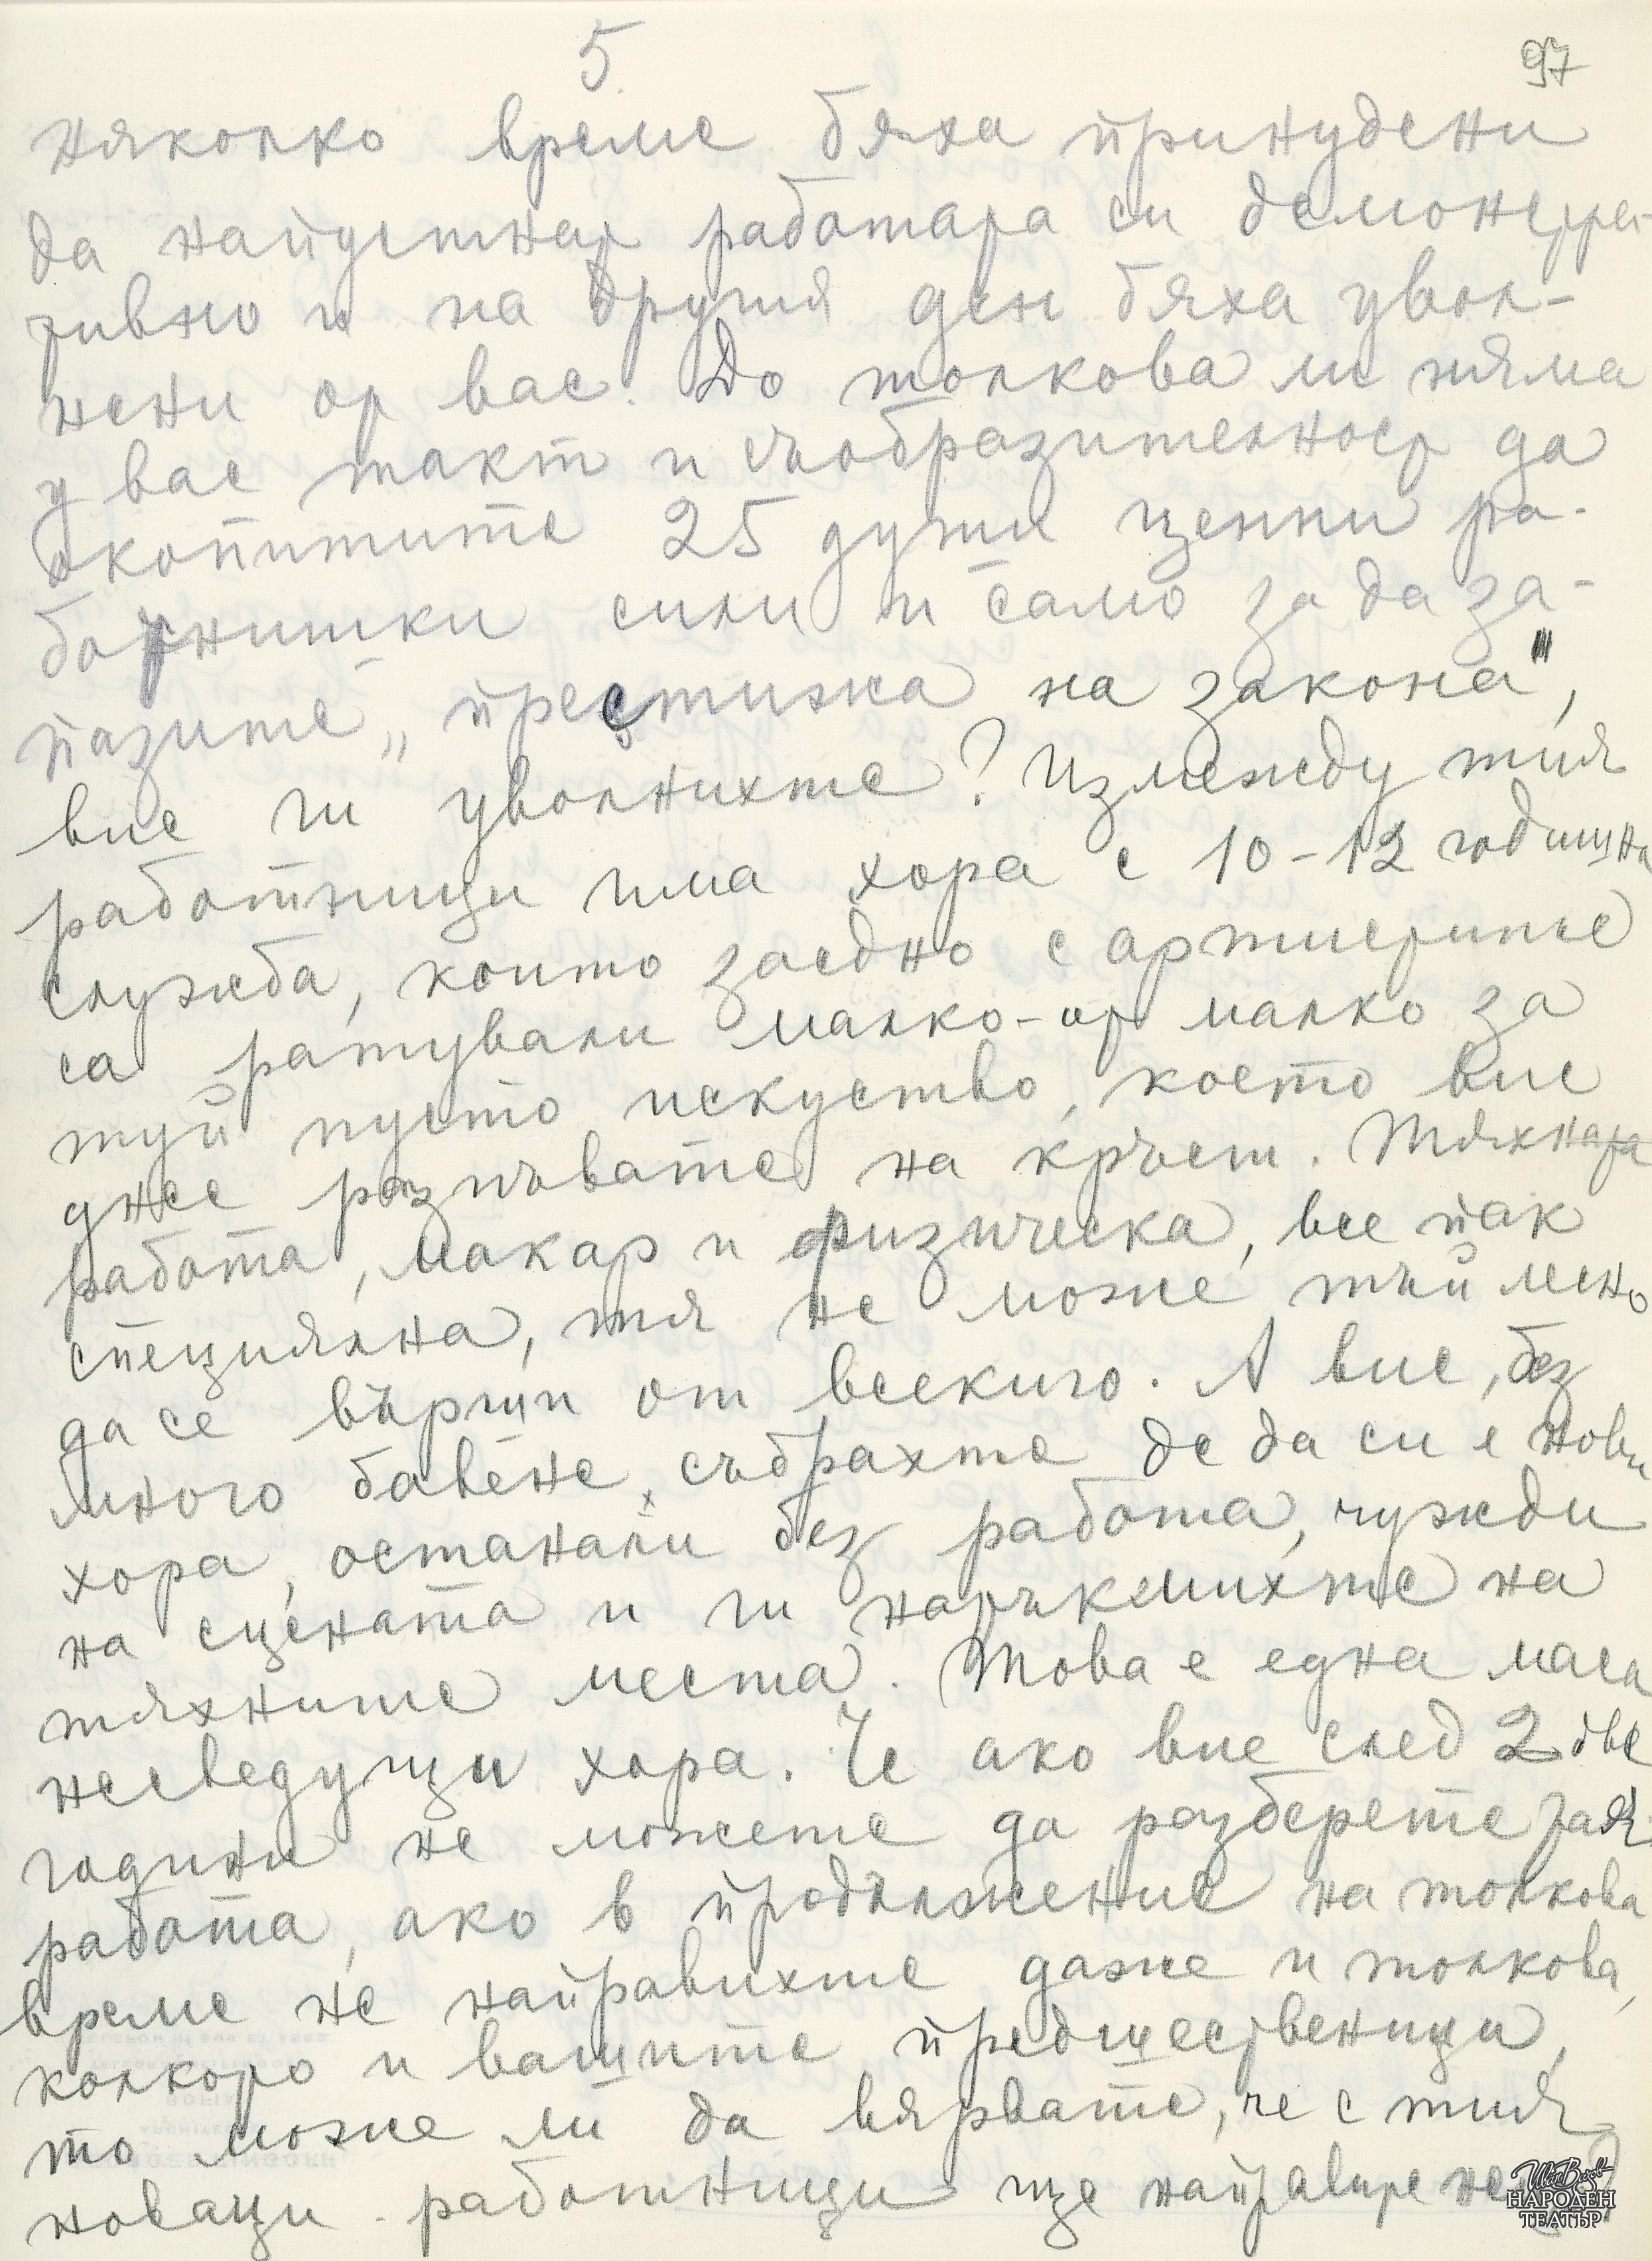 5
97
няколко време бяха принудени
да напустнат работата си демонстра-
тивно и на другия ден бяха увол-
нени от вас. До толкова ли няма
у вас такт и съобразителност да
скопитите 25 души ценни ра-
ботнишки сили и само за да за-
пазите „престижа на закона",
вие ги уволнихте? Измежду тия
работници има хора с 10-12 годишна
служба, които заедно с артистите
са ратували малко-от малко за
туй пусто искуство, което вие
днес разпъвате на кръст. Тяхната
работа, макар и физическа, все пак
специялна, тя не може тъй лесно
да се върши от всекиго. А вие, без
много бавене, събрахте де да си е нови
хора, останали без работа, чужди
на сцената и ги натъкмихте на
техните места. Това е една маса
несведущи хора. Че ако вие след 2 две
години не можете да разберете тая
работа, ако в продължение на толкова
време не направихте даже и толкова,
колкото и вашите предшественици,
то може ли да вярвате, че с тия
новаци - работници ще направите
Иван Вазов
НАРОДЕН
ТЕАТЪР